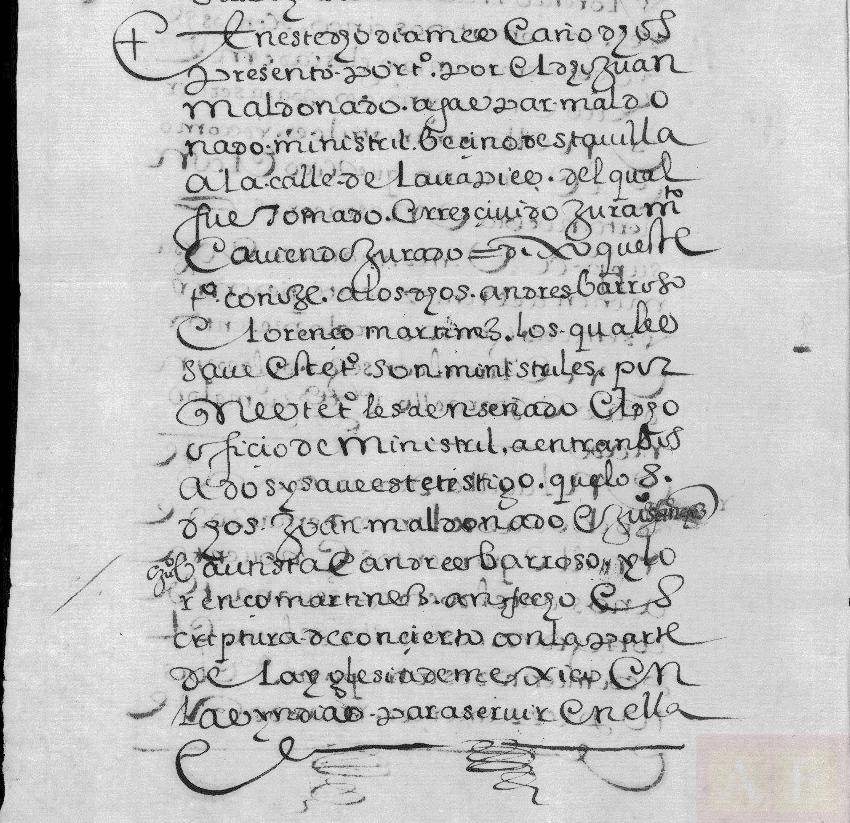 En este dho dia mes e año dhos
presento por tº. por el dho Juan
maldonado. a gaspar maldo
nado. ministril. vecino desta villa
a la calle de lavapies. del qual
fue tomado. e rrescivido juramto
e aviendo jurado = dixo queste
tº. conosze. a los dhos. andres barroso
e lorenço martinez. los quales
save este tº. son ministriles. por
ques este tº. les a enseñado el dho
oficio de ministril. a entranbos
a dos y save este testigo. que los.
dhos. Juan maldonado e
Juº bautista e andres barroso y lo
renço martines. an fecho es
criptura de concierto con la parte
de la yglesia de mexico en
las yndias. para servir en ella